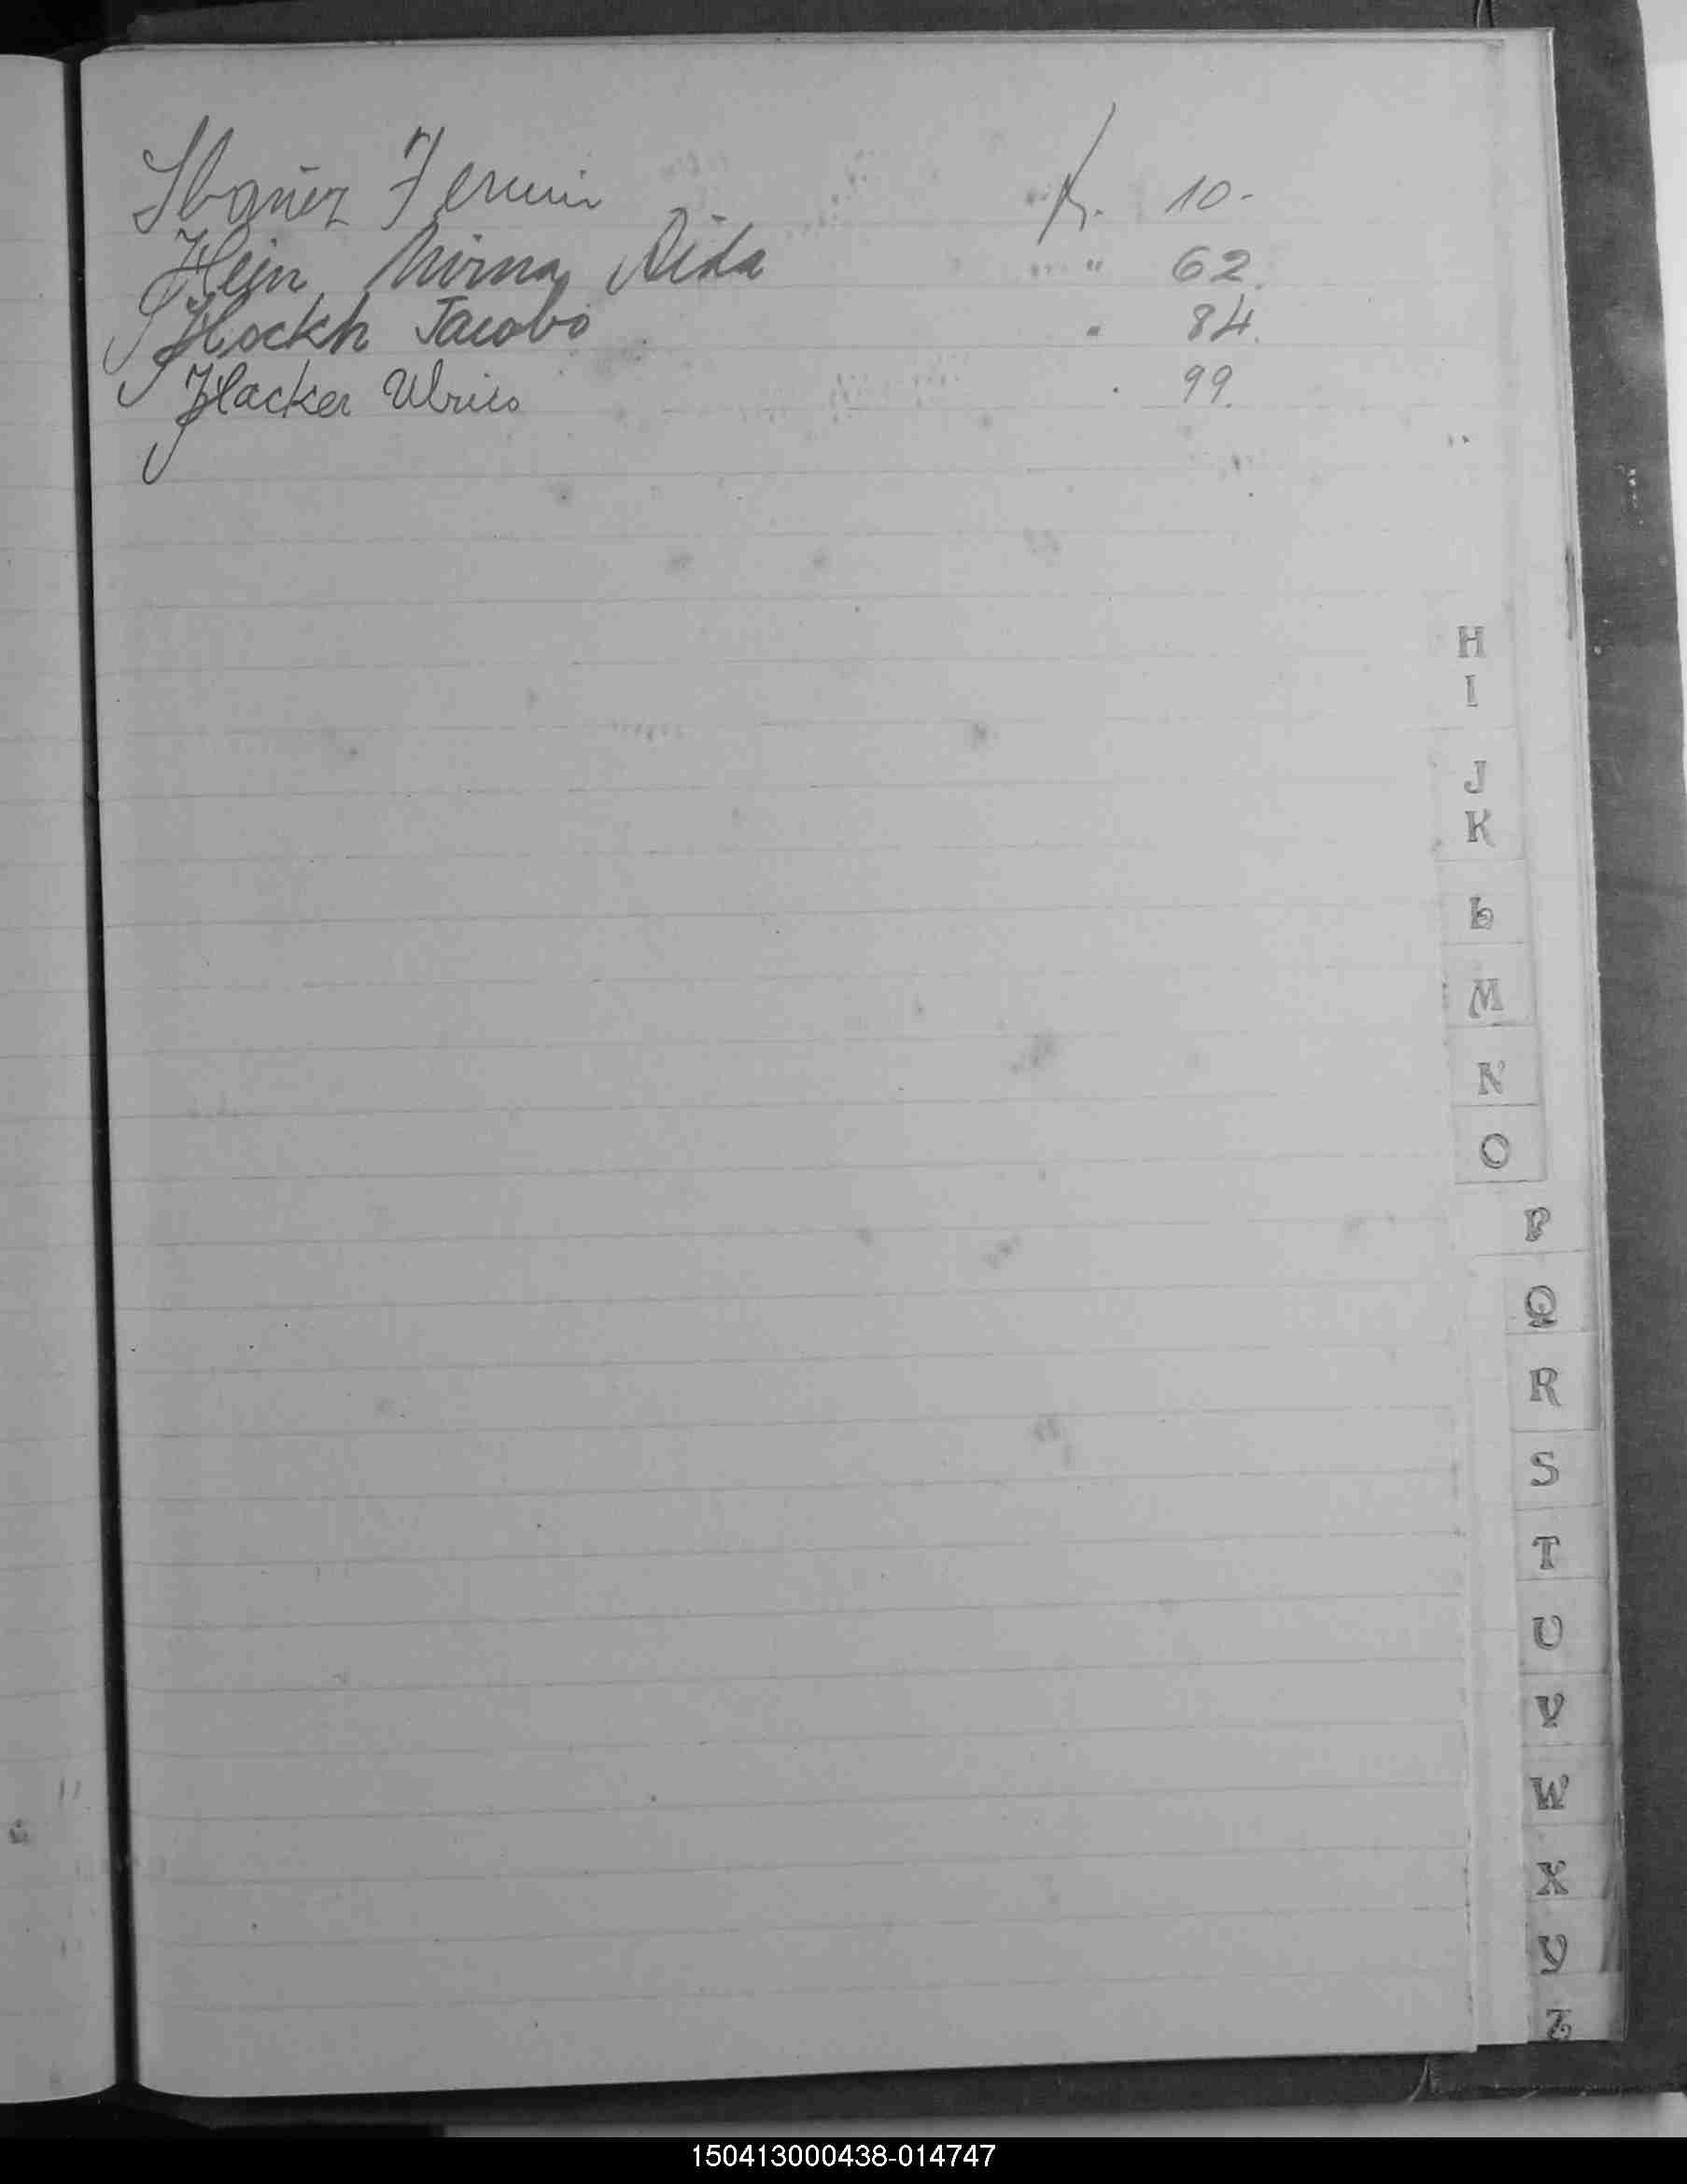 Ibañez Fermin fs. 10-
Hein Mirna Aida " 62.
Hockh Jacobo " 84.
Hacker Ulrico . 99.
H
I
J
K
L
M
N
O
P
Q
R
S
T
U
V
W
X
Y
Z
150413000438-014747